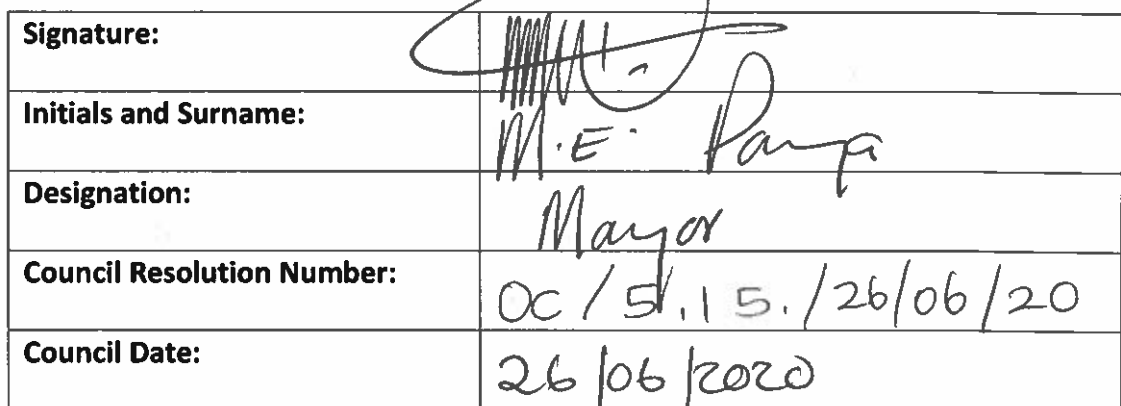 Signature:
Initials and Surname: M.E.
Designation: Mayor
Council Resolution Number: OC / 5.15. / 26/06/20
Council Date: 26/06/2020